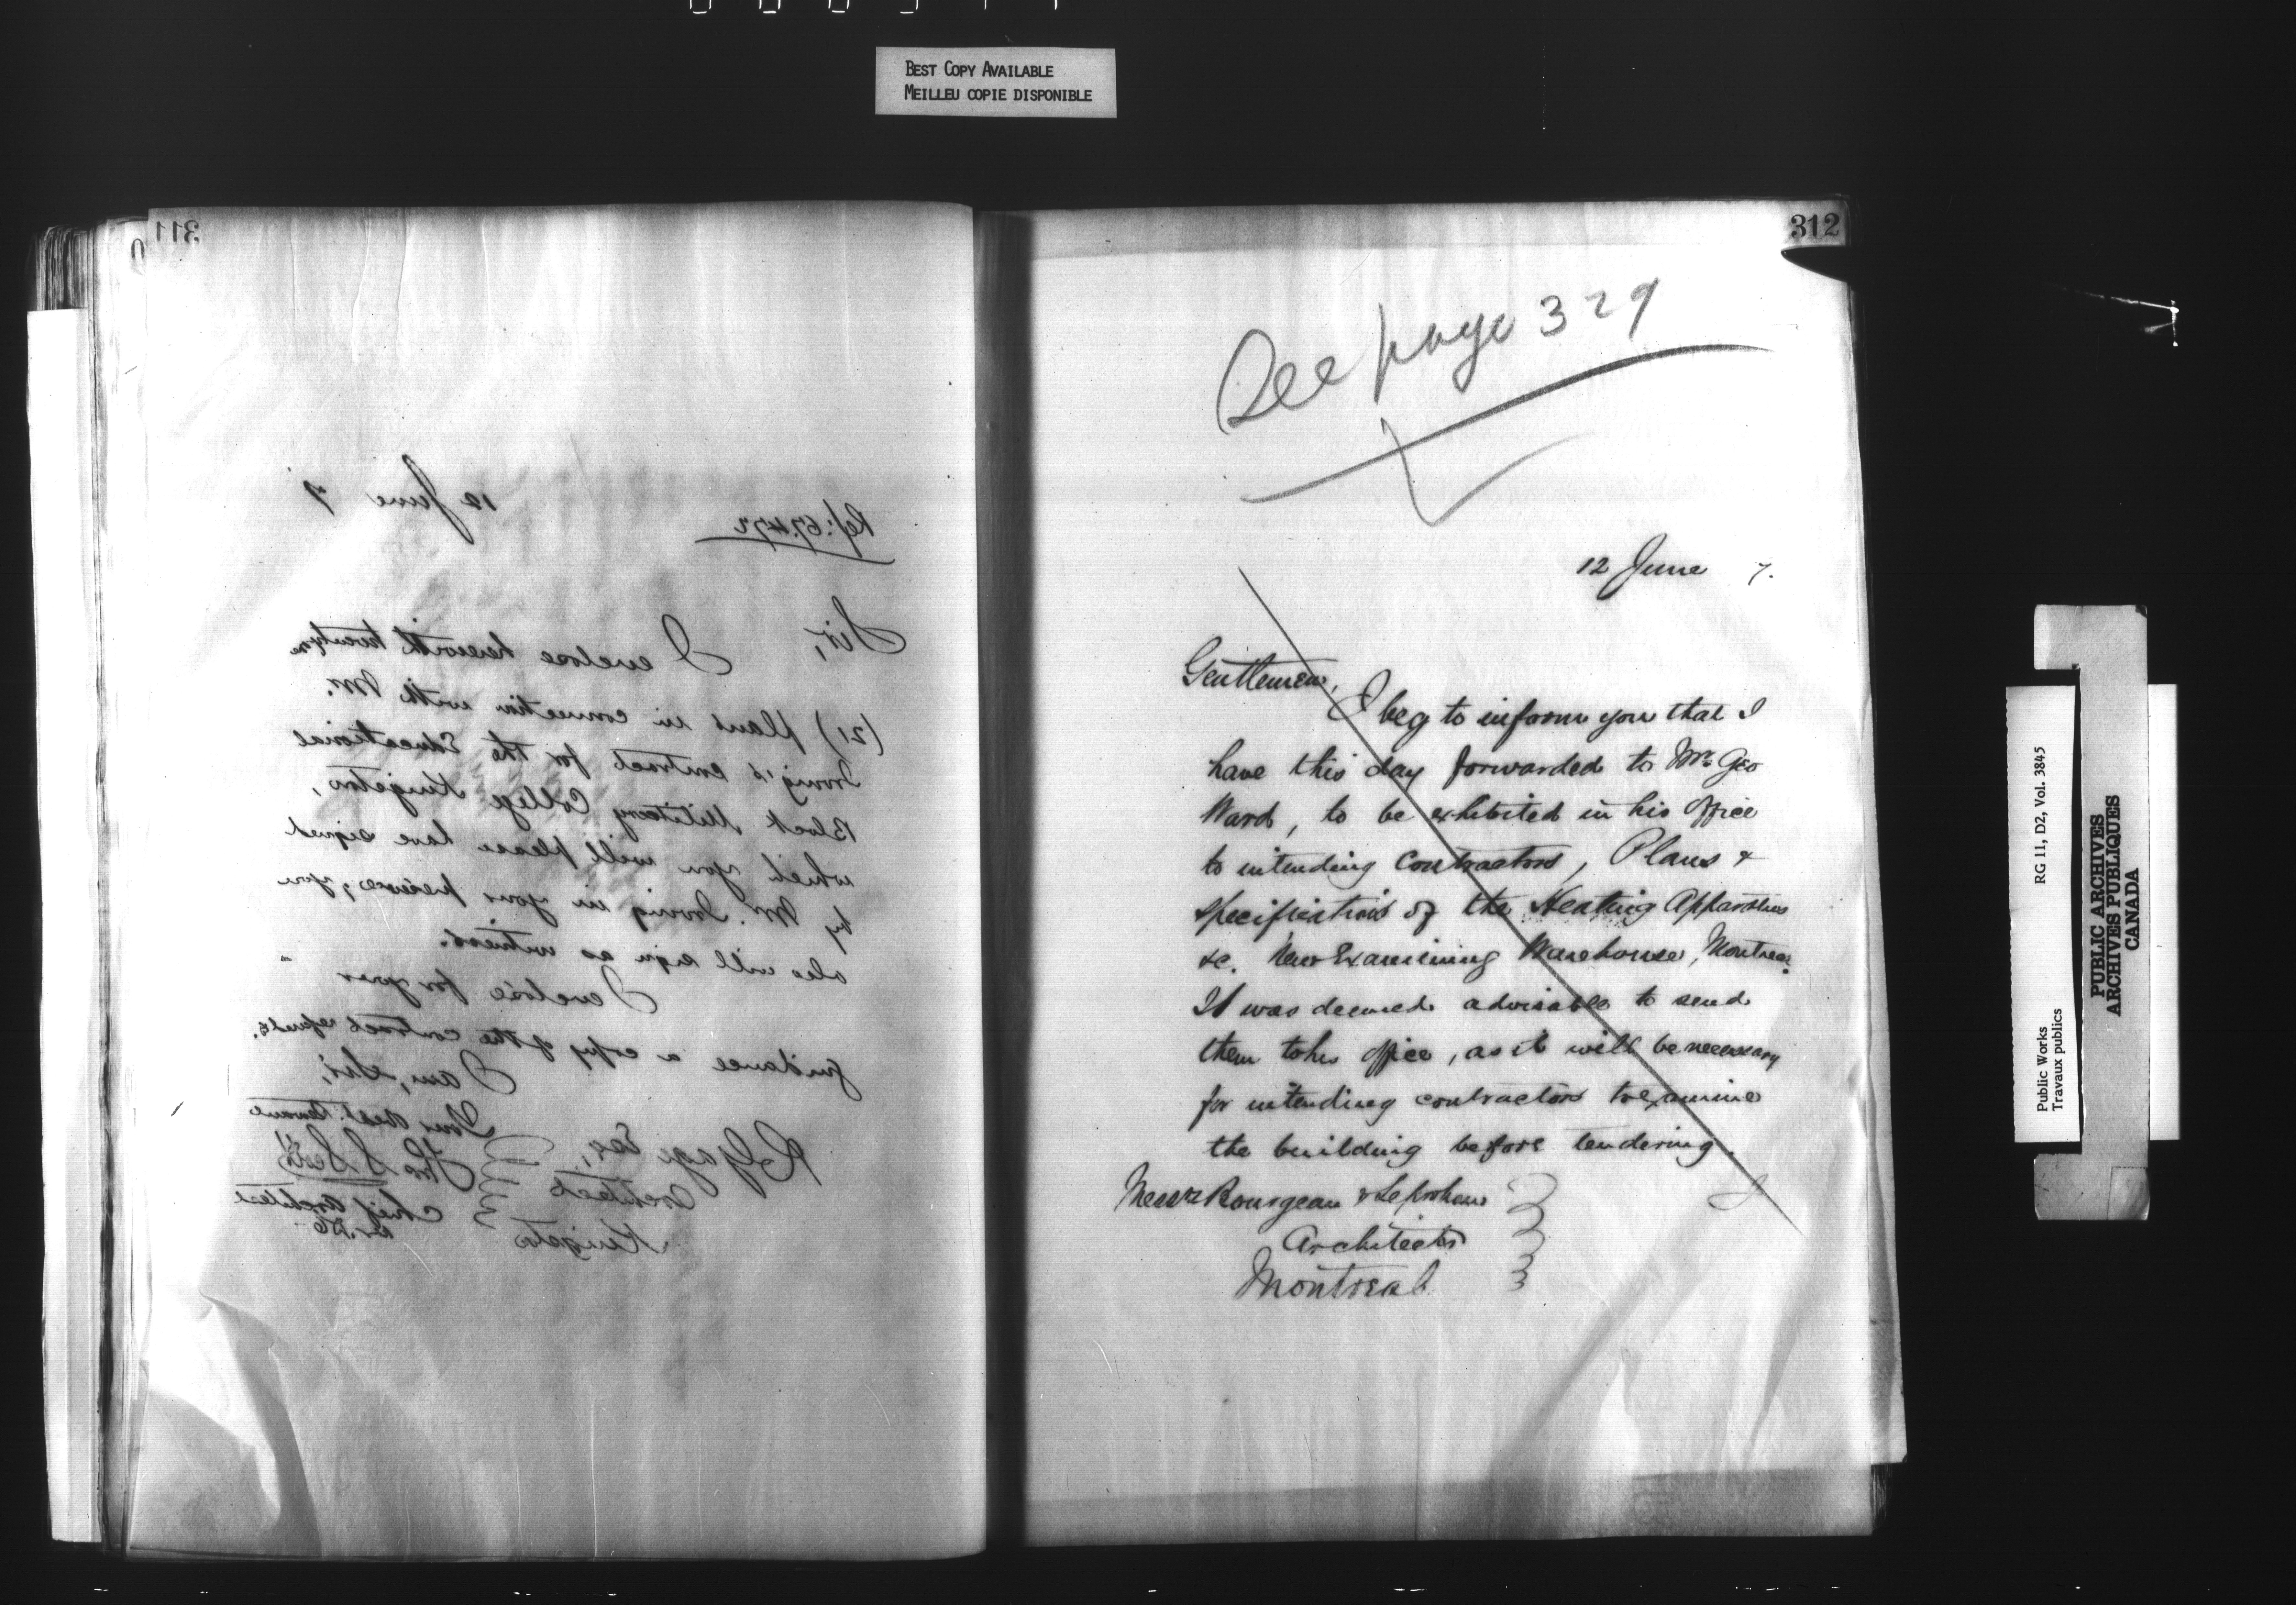 BEST COPY AVAILABLE
MEILLEU COPIE DISPONIBLE
311
12 June 7
Ref: 67.472
Sir,
I enclose herewith twenty one
(21) plans in connection with Mr.
Irving's contract for the Educational
Block Military College Kingston,
which you will please have signed
by Mr. Irving in your presence, you
also will sign as witness.
I enclose for your
guidance a copy of the contract
I am, Sir,
Your obdt. Servant
Thos S Scott
Chief Architect
R Gage Esq,
Architect
Kingston
312
See page 329
12 June 7.
Gentlemen,
I beg to inform you that I
have this day forwarded to Mr. Geo
Ward, to be exhibited in his office
to intending Contractors, Plans &
specifications of the Heating Apparatus
&c. New Examining Warehouse, Montreal.
It was deemed advisable to send
them to his office, as it will be necessary
for intending contractors to examine
the building before tendering.
Messrs Bourgeau & Leprohon
Architects
Montreal
RG 11, D2, Vol. 3845
Public Works
Travaux publics
PUBLIC ARCHIVES
ARCHIVES PUBLIQUES
CANADA